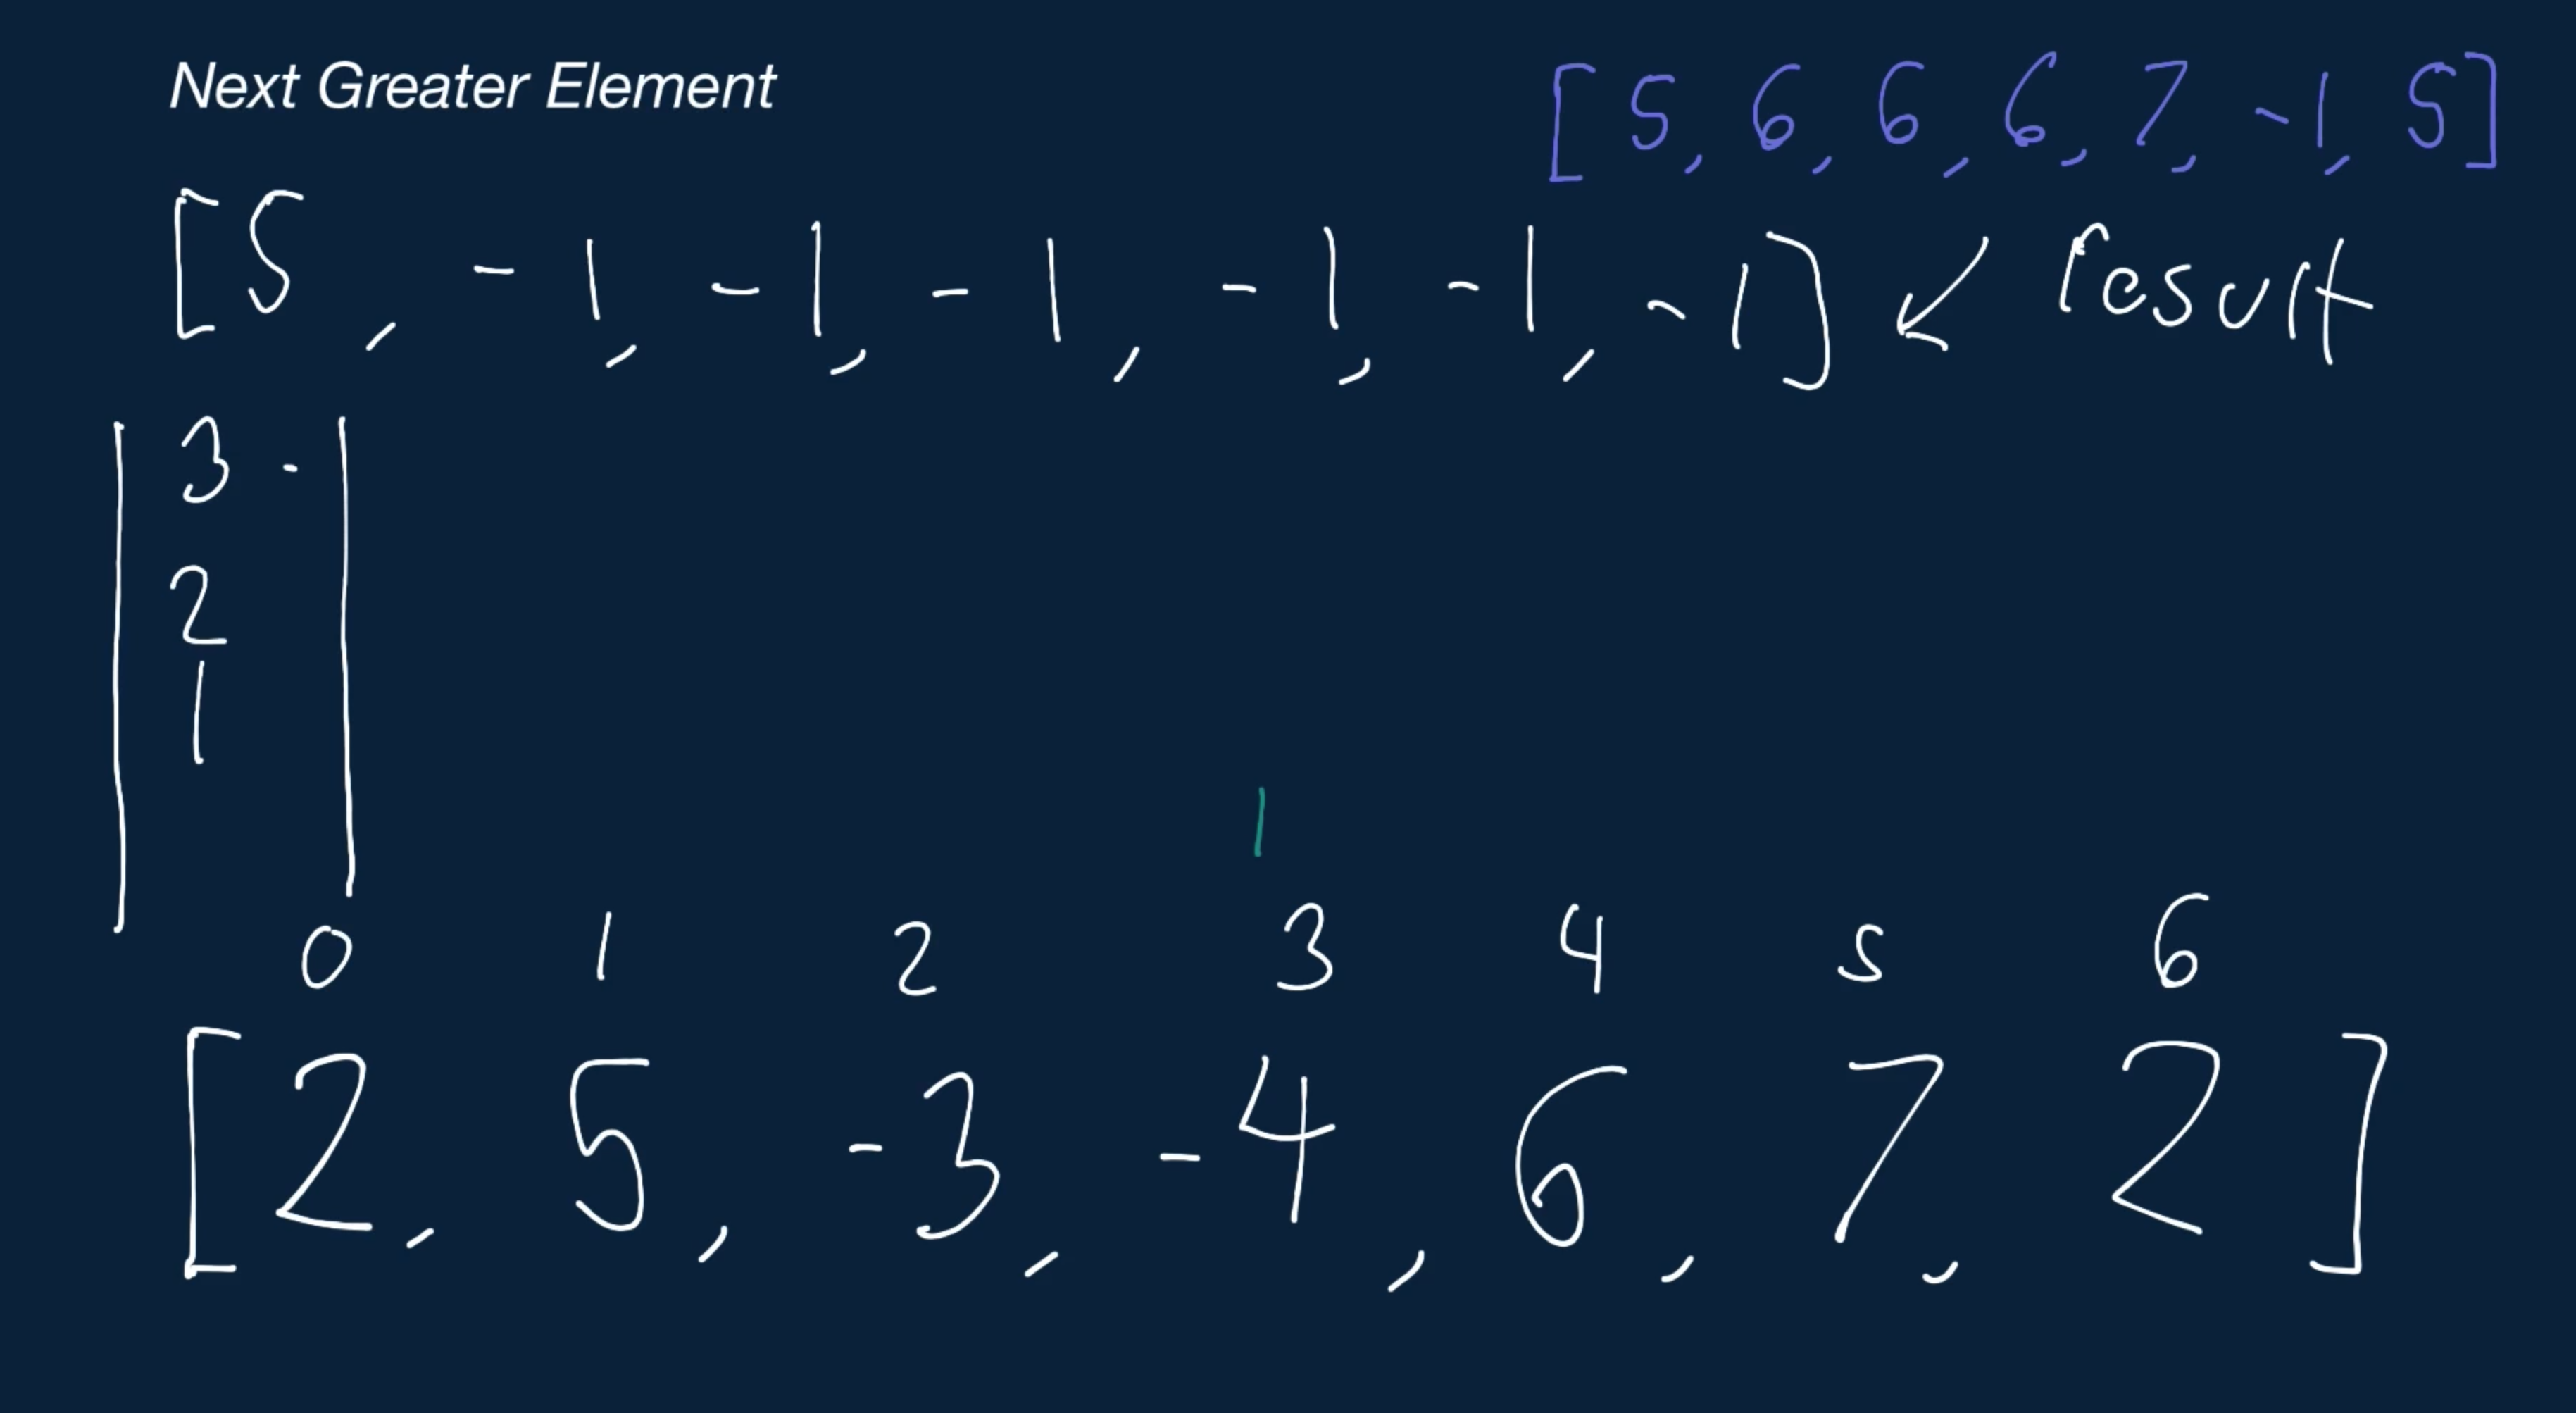 Next Greater Element
[5, 6, 6, 6, 7, -1, 5]
[5, -1, -1, -1, -1, -1, -1] ↙ result
3 -
2
1
0 1 2 3 4 5 6
[2, 5, -3, -4, 6, 7, 2]